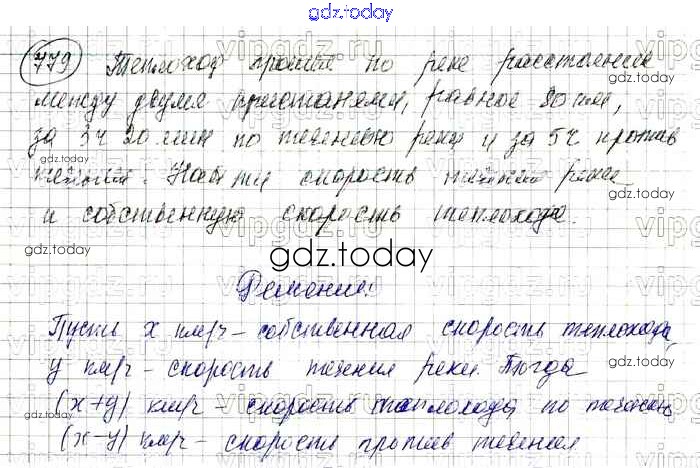 gdz.today
779 Теплоход прошёл по реке расстояние
между двумя пристанями, равное 80 км,
за 3ч 20 мин по течению реки и за 5ч против
течения. Найти скорость течения реки
и собственную скорость теплохода.
gdz.today
Решение:
Пусть x км/ч – собственная скорость теплохода,
y км/ч – скорость течения реки. Тогда
(x+y) км/ч – скорость теплохода по течению
(x–y) км/ч – скорость против течения